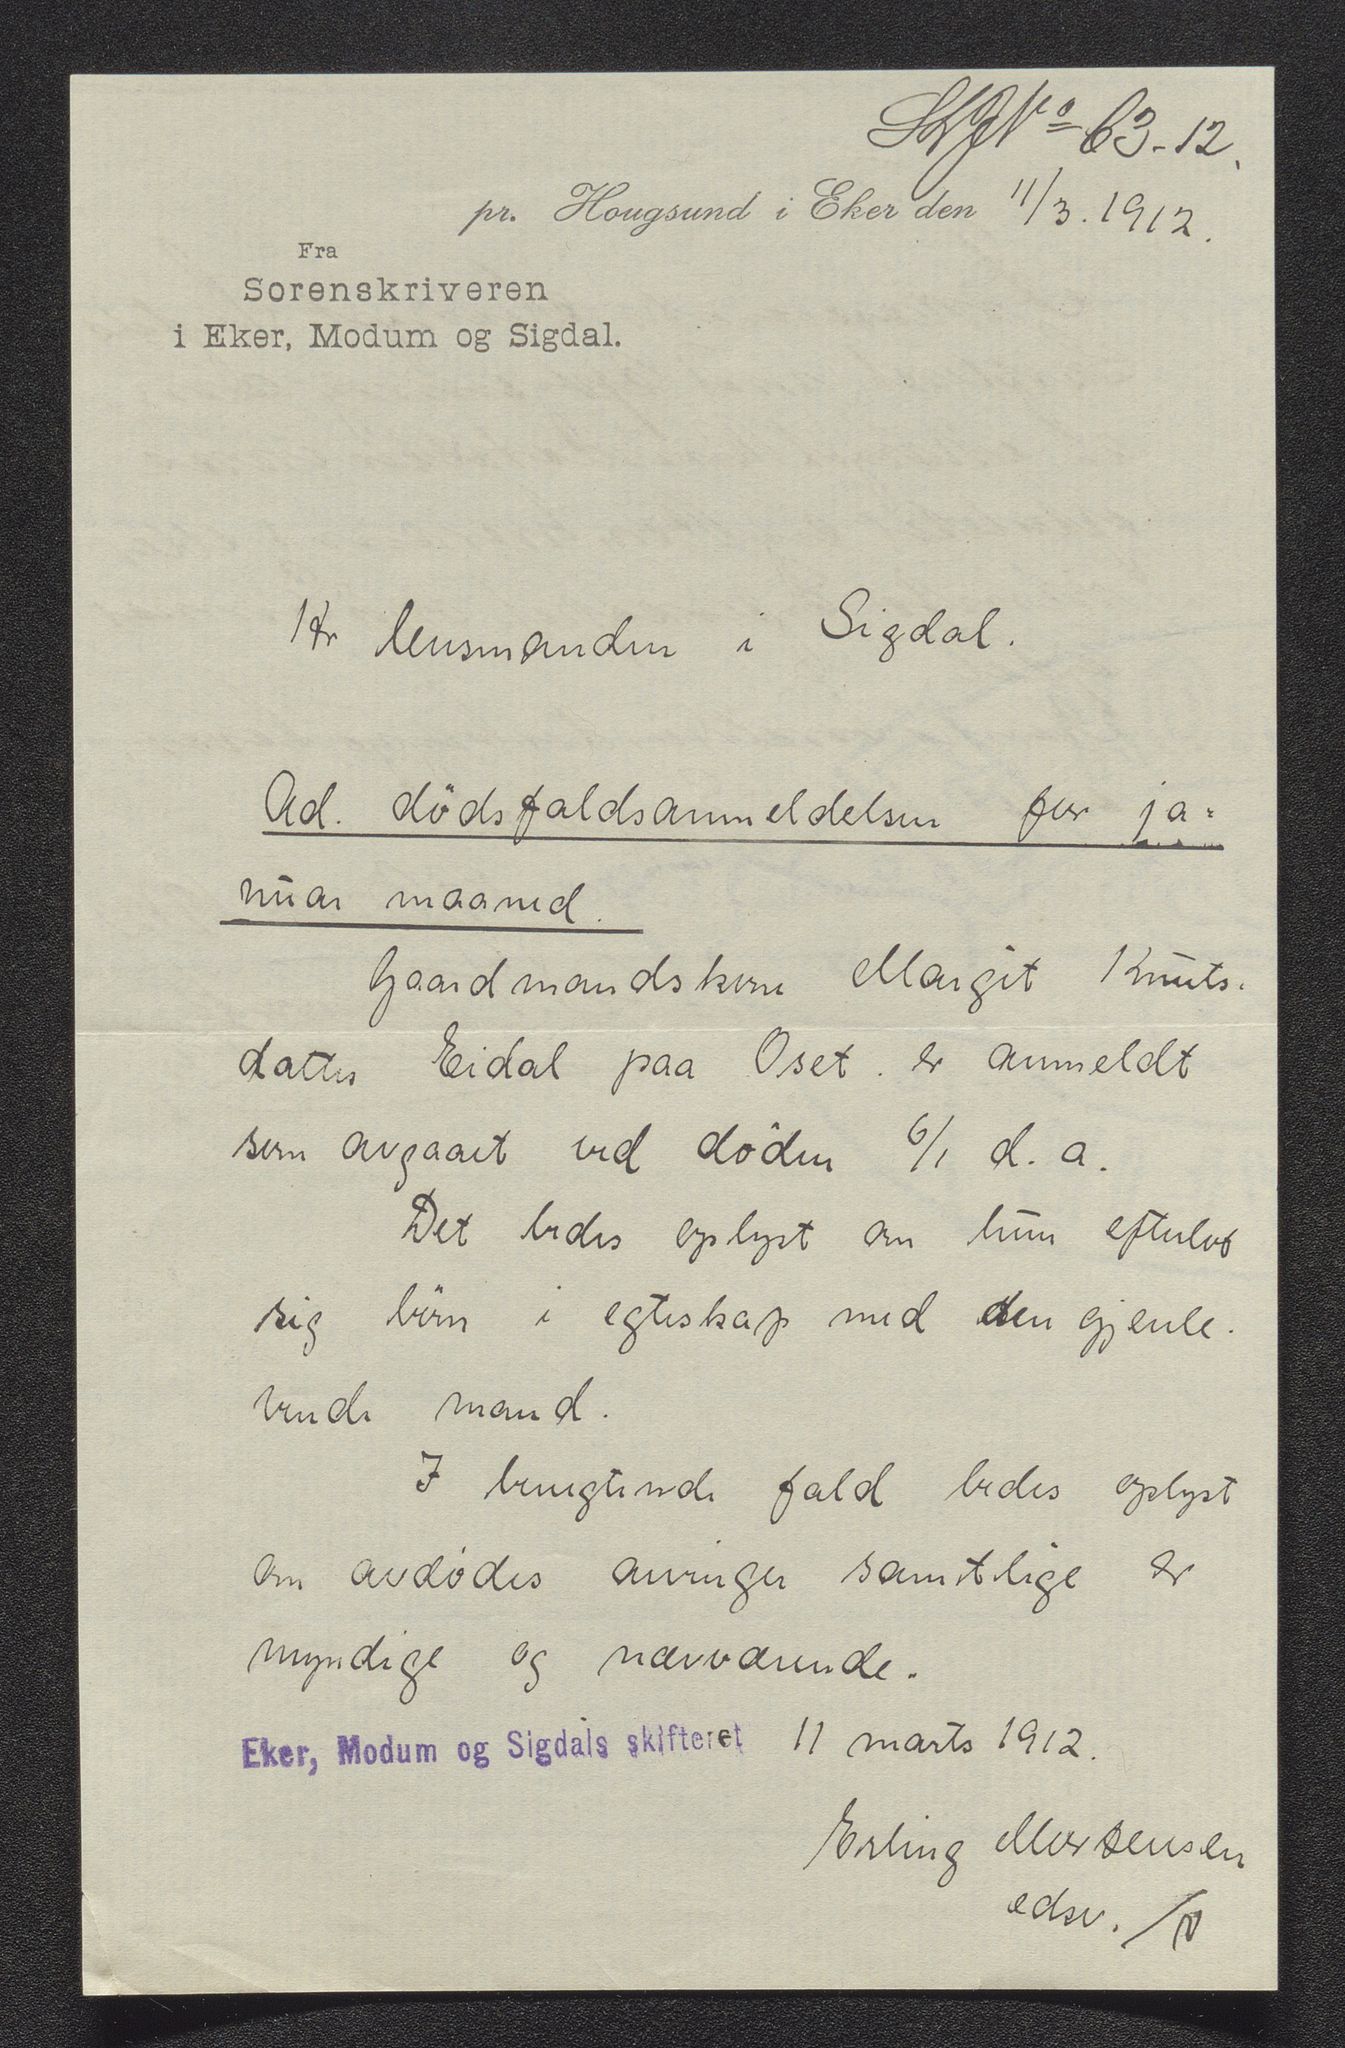 No 63-12.
pr. Hougsund i Eker den 11/3. 1912.
Fra
Sorenskriveren
i Eker, Modum og Sigdal.
Hr lensmanden i Sigdal.
Ad. dödsfaldsanmeldelsen for ja-
nuar maaned.
Gaardmandskone Margit Knuts-
datter Eidal paa Oset. er anmeldt
som avgaaet ved döden 6/1 d. a.
Det bedes oplyst om hun efterlot
sig börn i egteskap med den gjenle-
vende mand.
I benegtende fald bedes oplyst
om avdödes arvinger samtlige er
myndige og nærværende.
Eker, Modum og Sigdals skifteret 11 marts 1912.
Erling Mortensen
edsv.